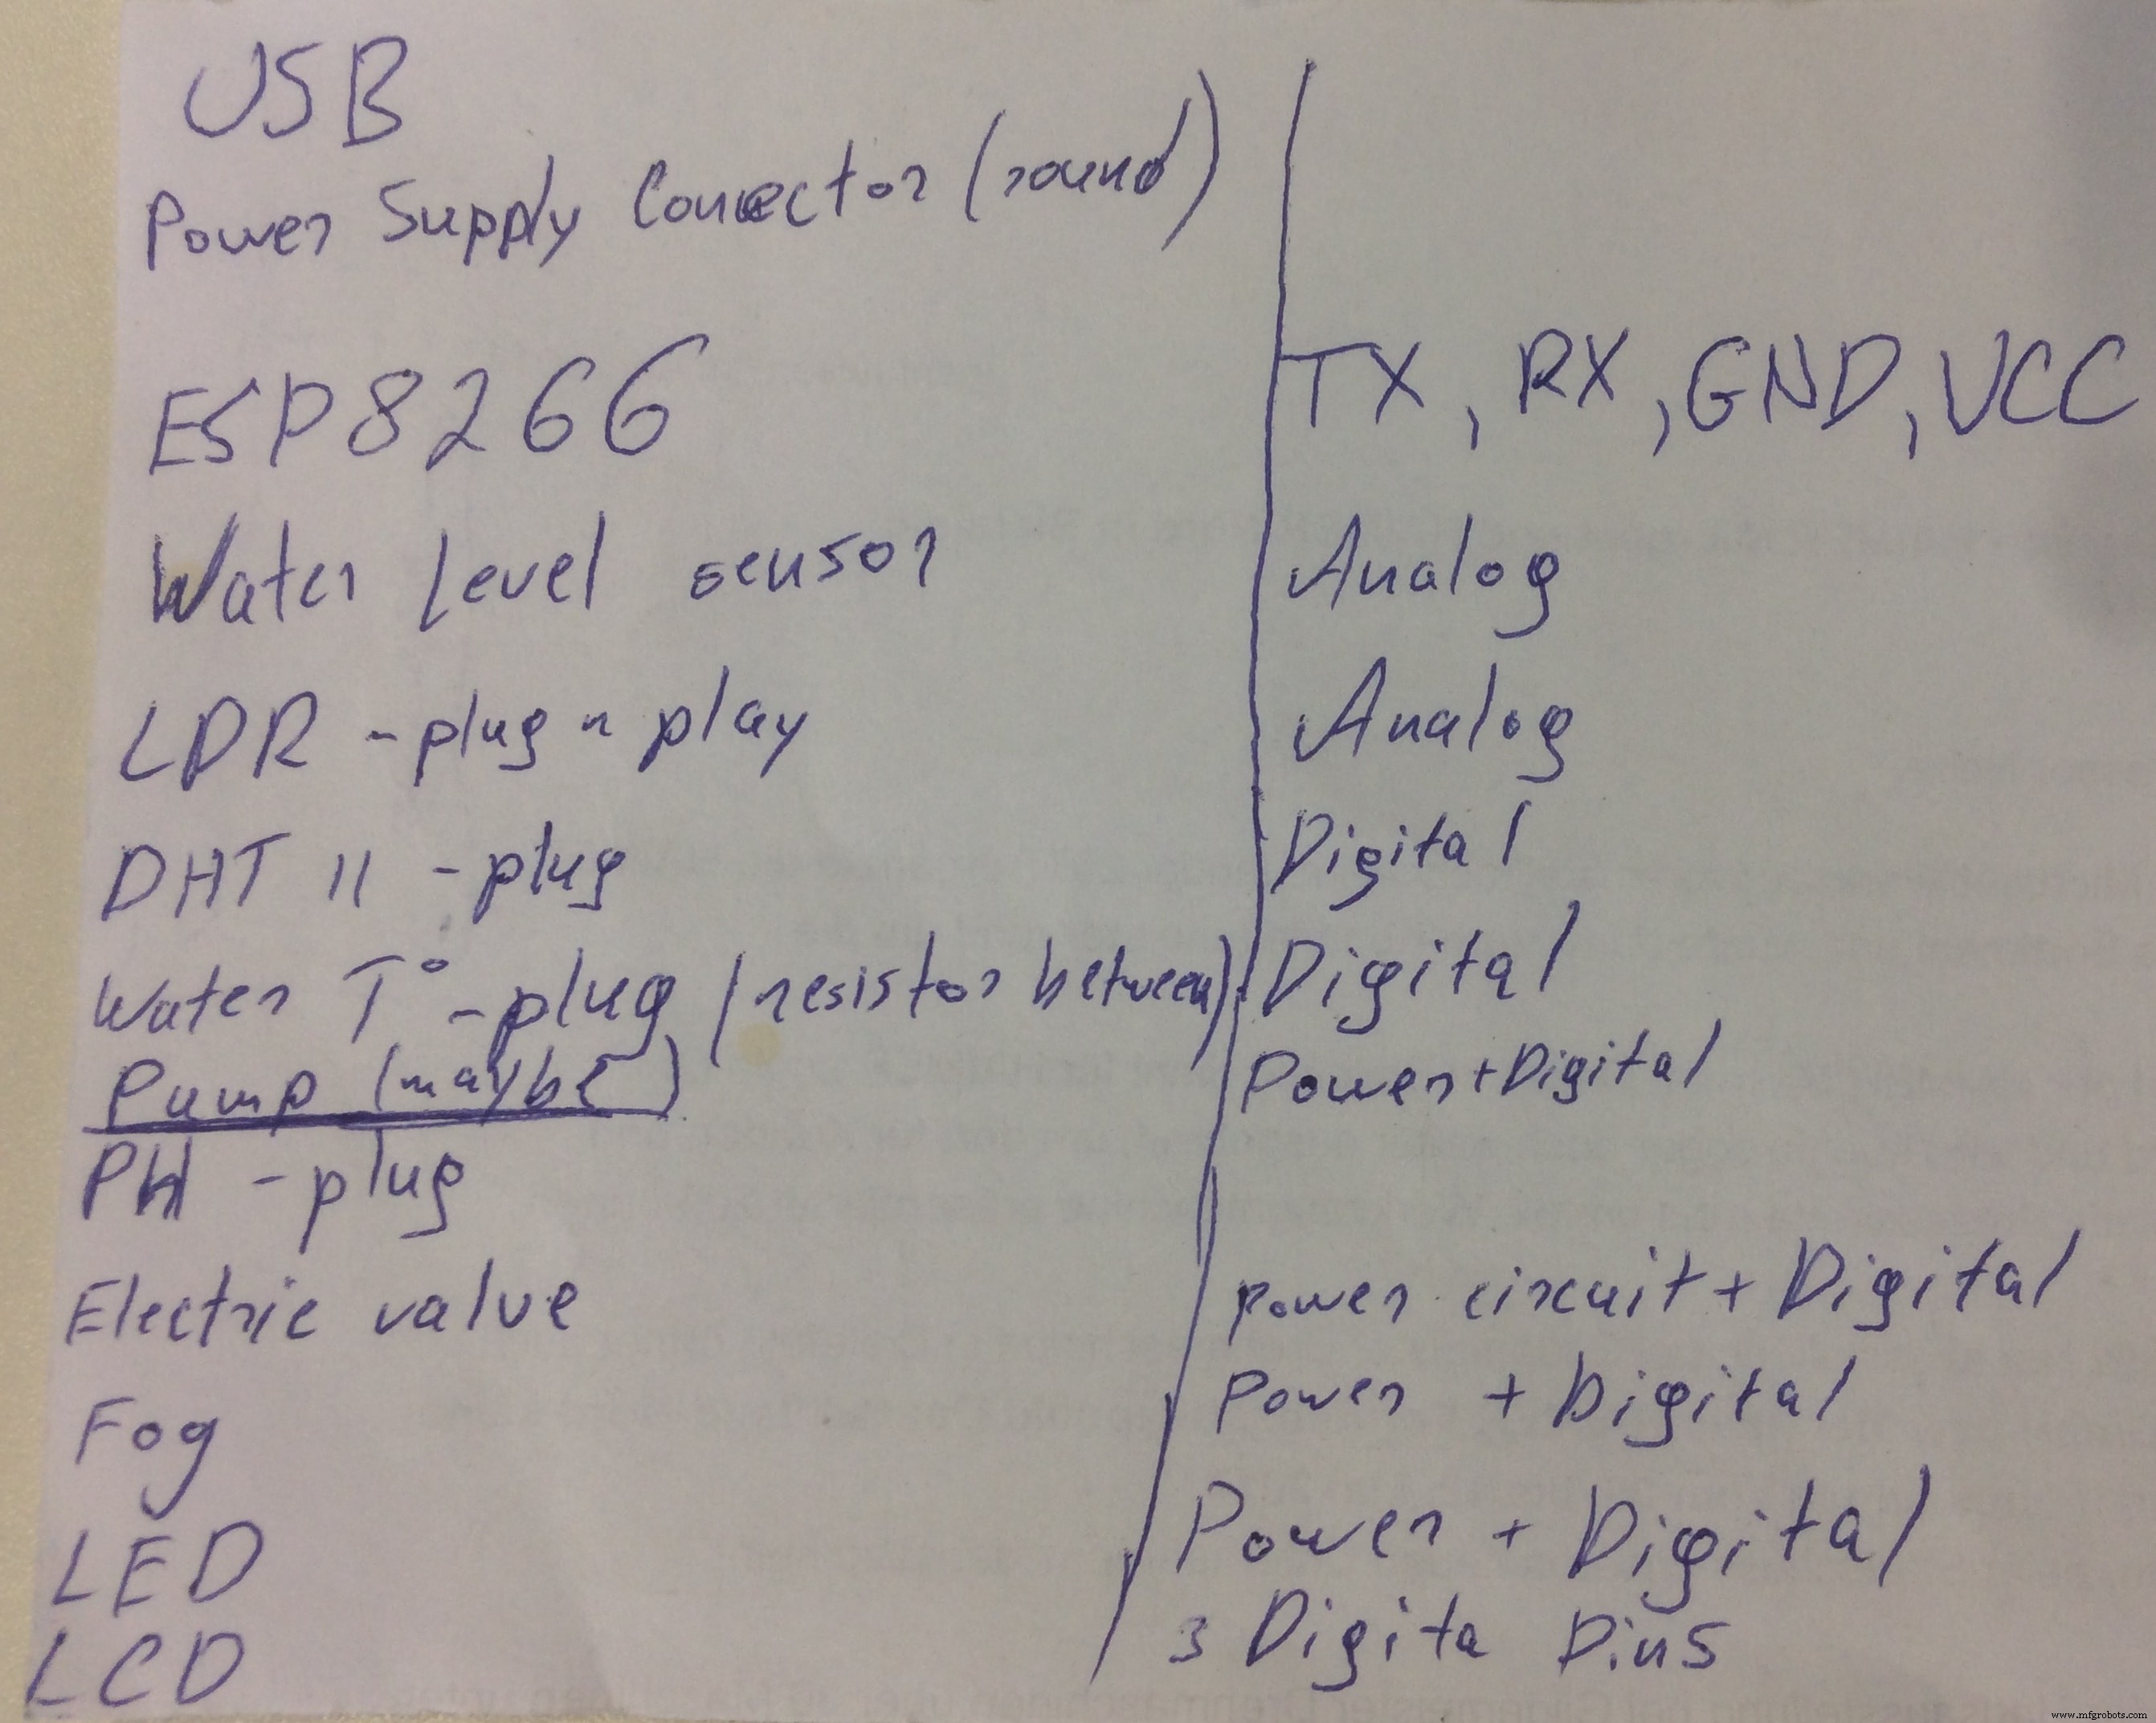 USB
Power Supply Conector (round)
ESP8266 TX, RX, GND, VCC
Water Level sensor Analog
LDR - plug n play Analog
DHT 11 - plug Digital
Water T° - plug (resistor between) Digital
Pump (maybe) Power+Digital
PH - plug
Electric valve power circuit + Digital
Fog Power + Digital
LED Power + Digital
LCD 3 Digita Pins
www.mfgrobots.com